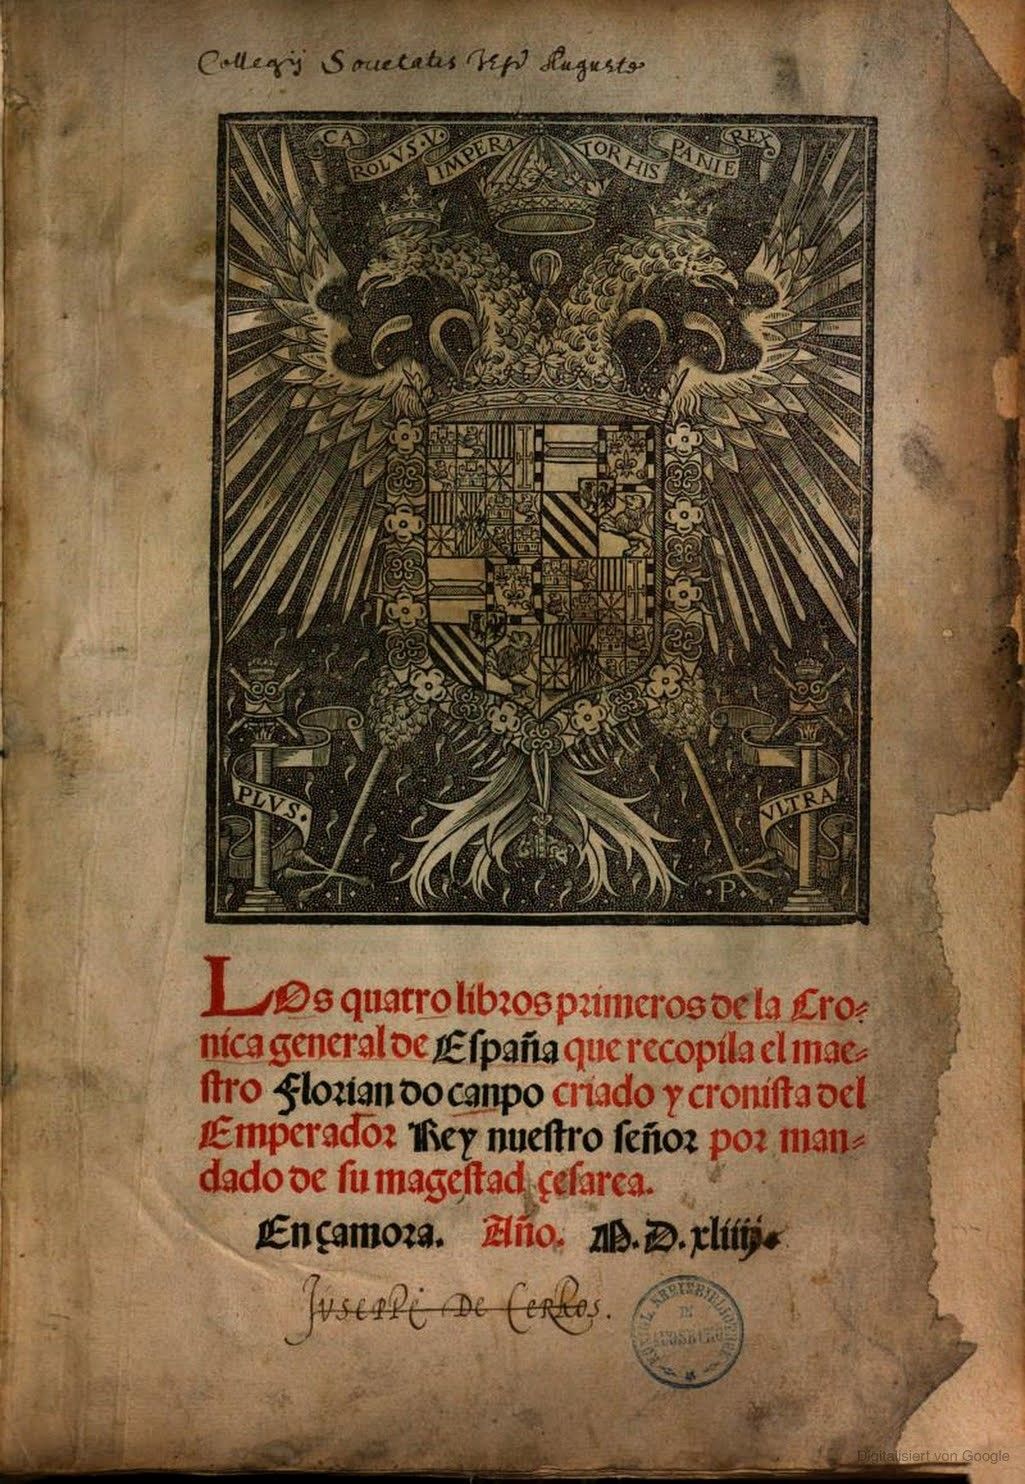 Collegij Societatis Iesu Augustę
CAROLVS·V· IMPERATOR HISPANIE REX
PLVS·
VLTRA
·I·
·P·
LOs quatro libros primeros de la Cro⸗
nica general de España que recopila el mae⸗
stro Florian do canpo criado y cronista del
Emperador Rey nuestro señor por man⸗
dado de su magestad çesarea.
En çamora. Año. M.D.xliiij.
Juseppe de Cerros.
KÖNIGL. KREISBIBLIOTHEK
IN
AUGSBURG
Digitalisiert von Google